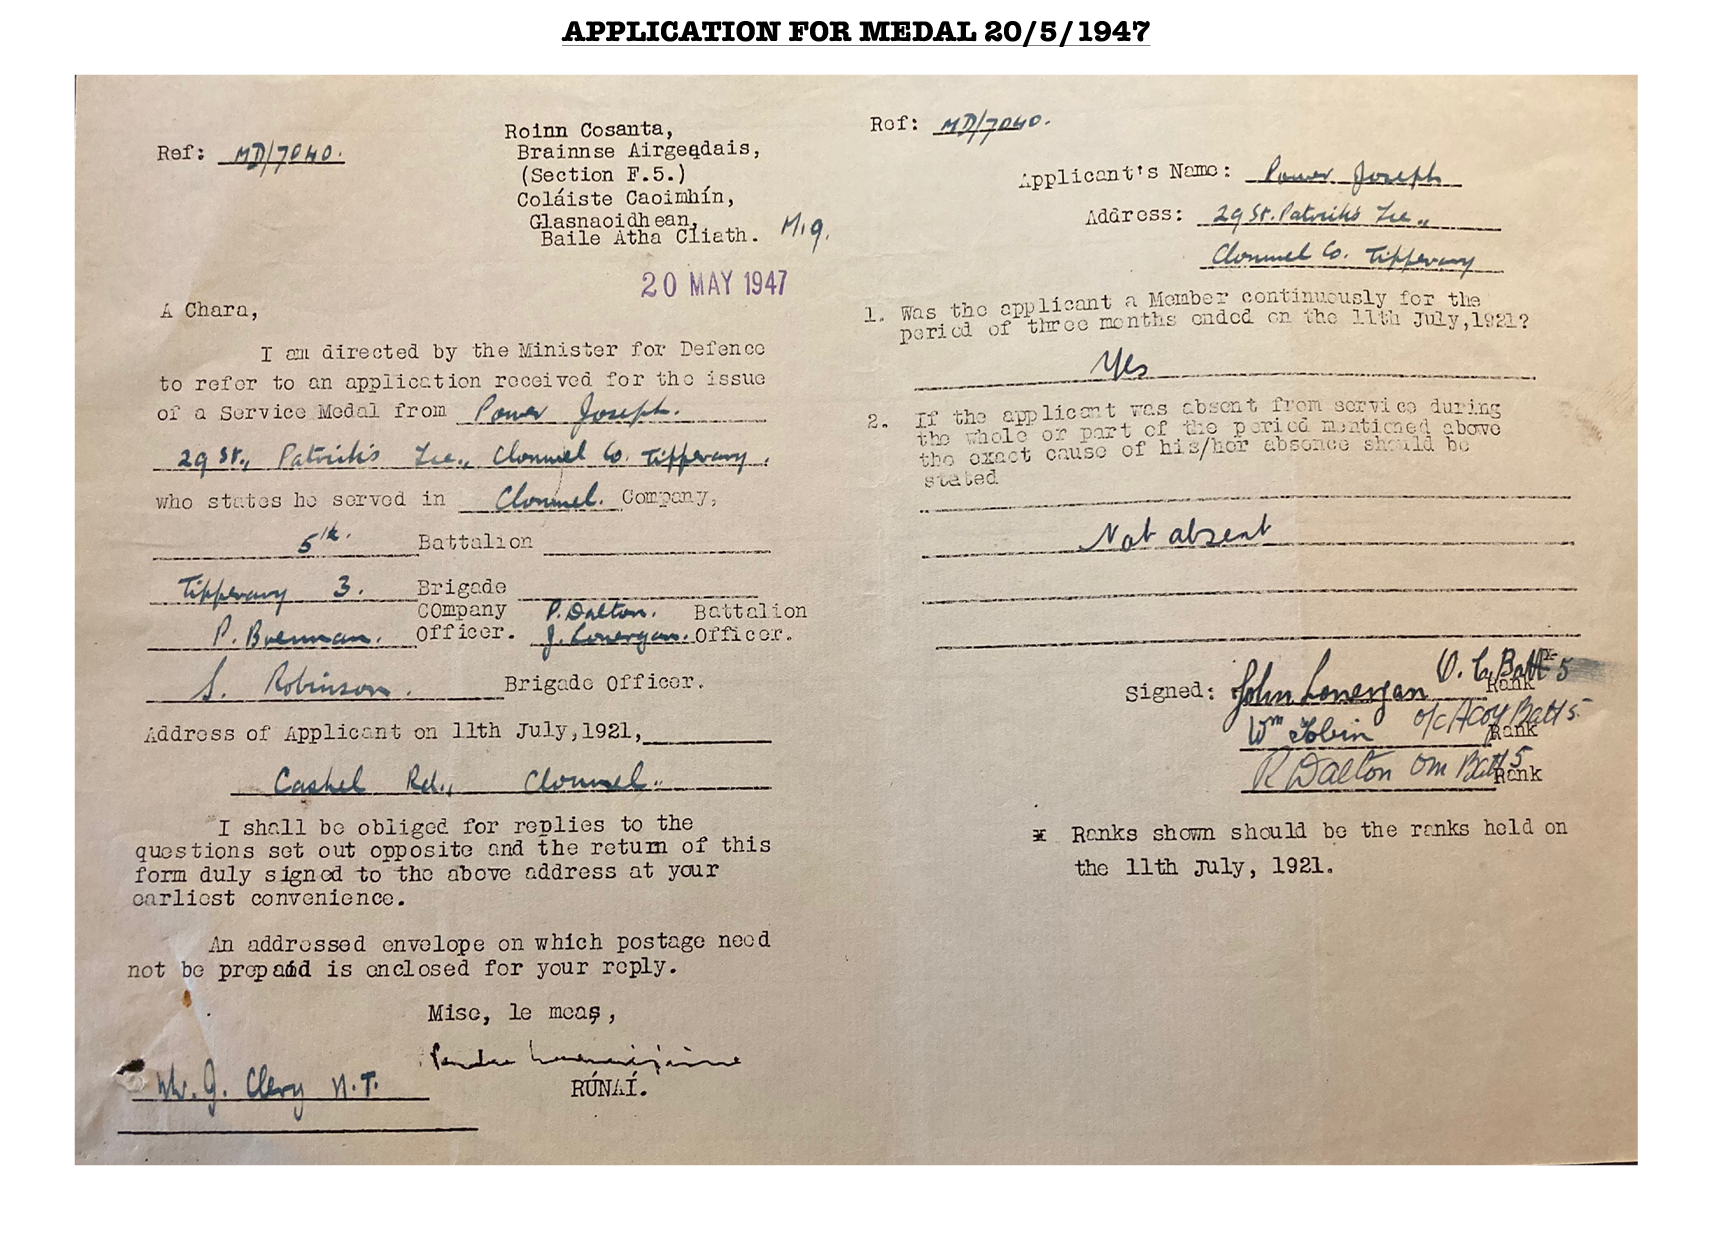 APPLICATION FOR MEDAL 20/5/1947
Ref: MD/7040.
Roinn Cosanta,
Brainnse Airgeadais,
(Section F.5.)
Coláiste Caoimhín,
Glasnaoidhean,
Baile Atha Cliath.
20 MAY 1947
A Chara,
I am directed by the Minister for Defence
to refer to an application received for the issue
of a Service Medal from Power Joseph.
29 St., Patrick's Tce., Clonmel Co. Tipperary.
who states he served in Clonmel. Company,
5th. Battalion
Tipperary 3. Brigade
P. Brennan. Company Officer. P. Dalton. J. Lonergan. Battalion Officer.
S. Robinson. Brigade Officer.
Address of Applicant on 11th July,1921,
Cashel Rd., Clonmel.
I shall be obliged for replies to the
questions set out opposite and the return of this
form duly signed to the above address at your
earliest convenience.
An addressed envelope on which postage need
not be prepaid is enclosed for your reply.
Mise, le meas,
RÚNAÍ.
Mr. J. Clery N.T.
Ref: MD/7040.
Applicant's Name: Power Joseph
Address: 29 St. Patrick's Tce.,
Clonmel Co. Tipperary
1. Was the applicant a Member continuously for the
period of three months ended on the 11th July,1921?
Yes
2. If the applicant was absent from service during
the whole or part of the period mentioned above
the exact cause of his/her absence should be
stated
Not absent
Signed: John Lonergan O.C. Batt 5 Rank
Wm Tobin o/c A Coy Batt 5 Rank
R Dalton QM Batt 5 Rank
* Ranks shown should be the ranks held on
the 11th July, 1921.